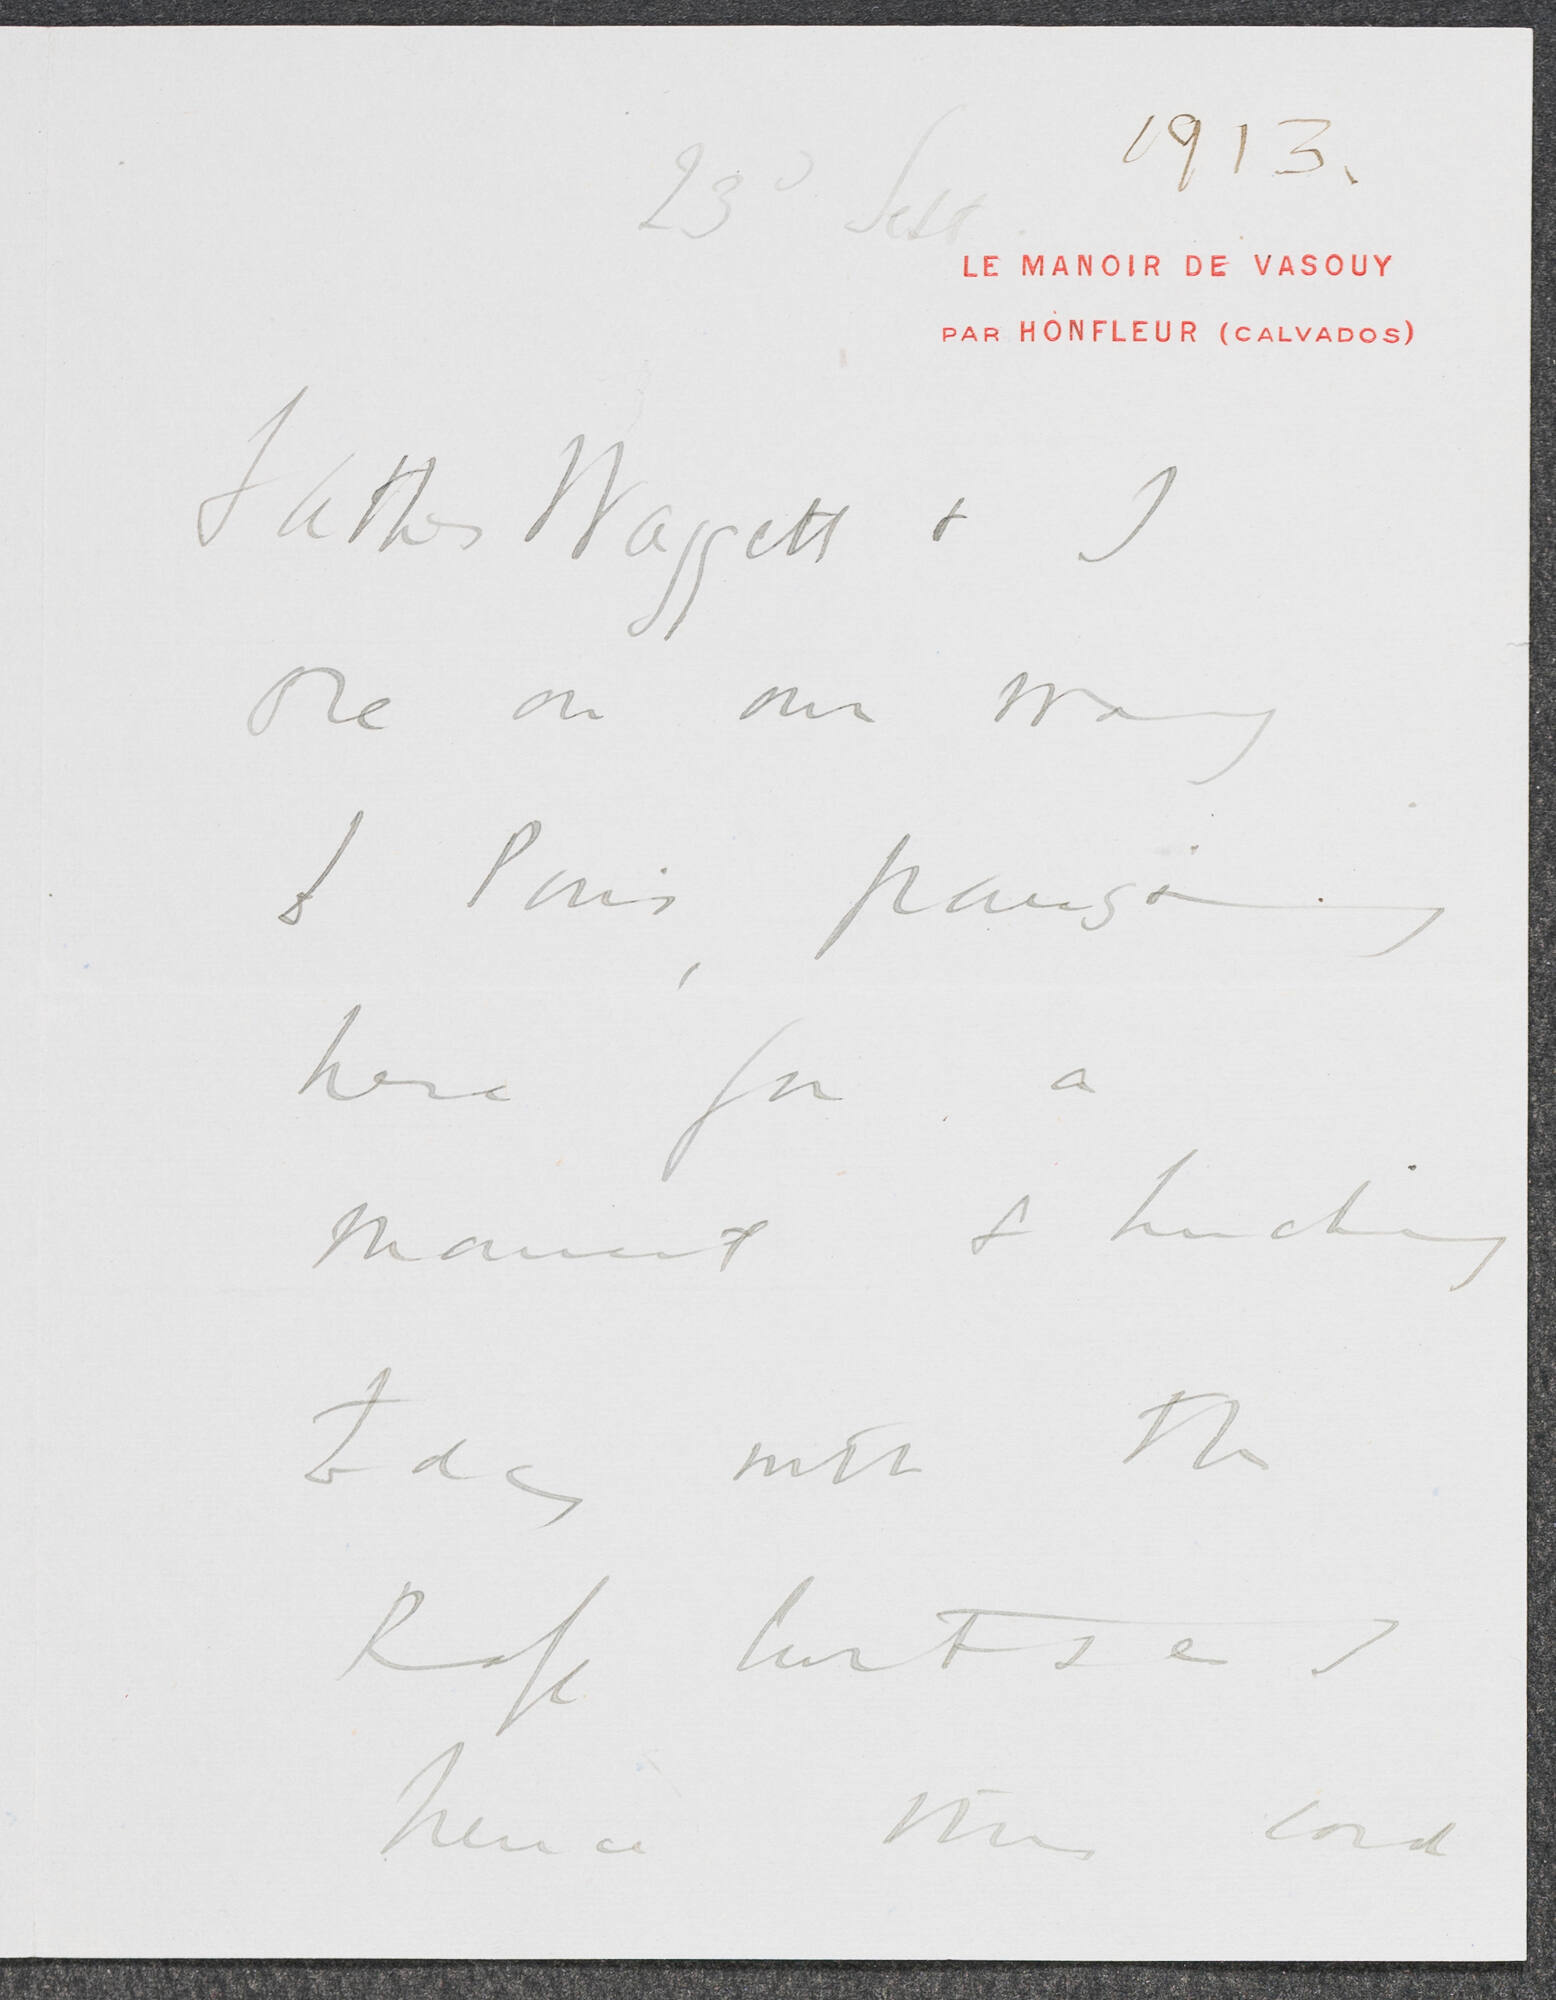 1913.
23º Sept.
LE MANOIR DE VASOUY
PAR HONFLEUR (CALVADOS)
Father Waggett + I
are on our way
to Paris, pausing
here for a
moment & lunching
today with the
Rafe
hence this card